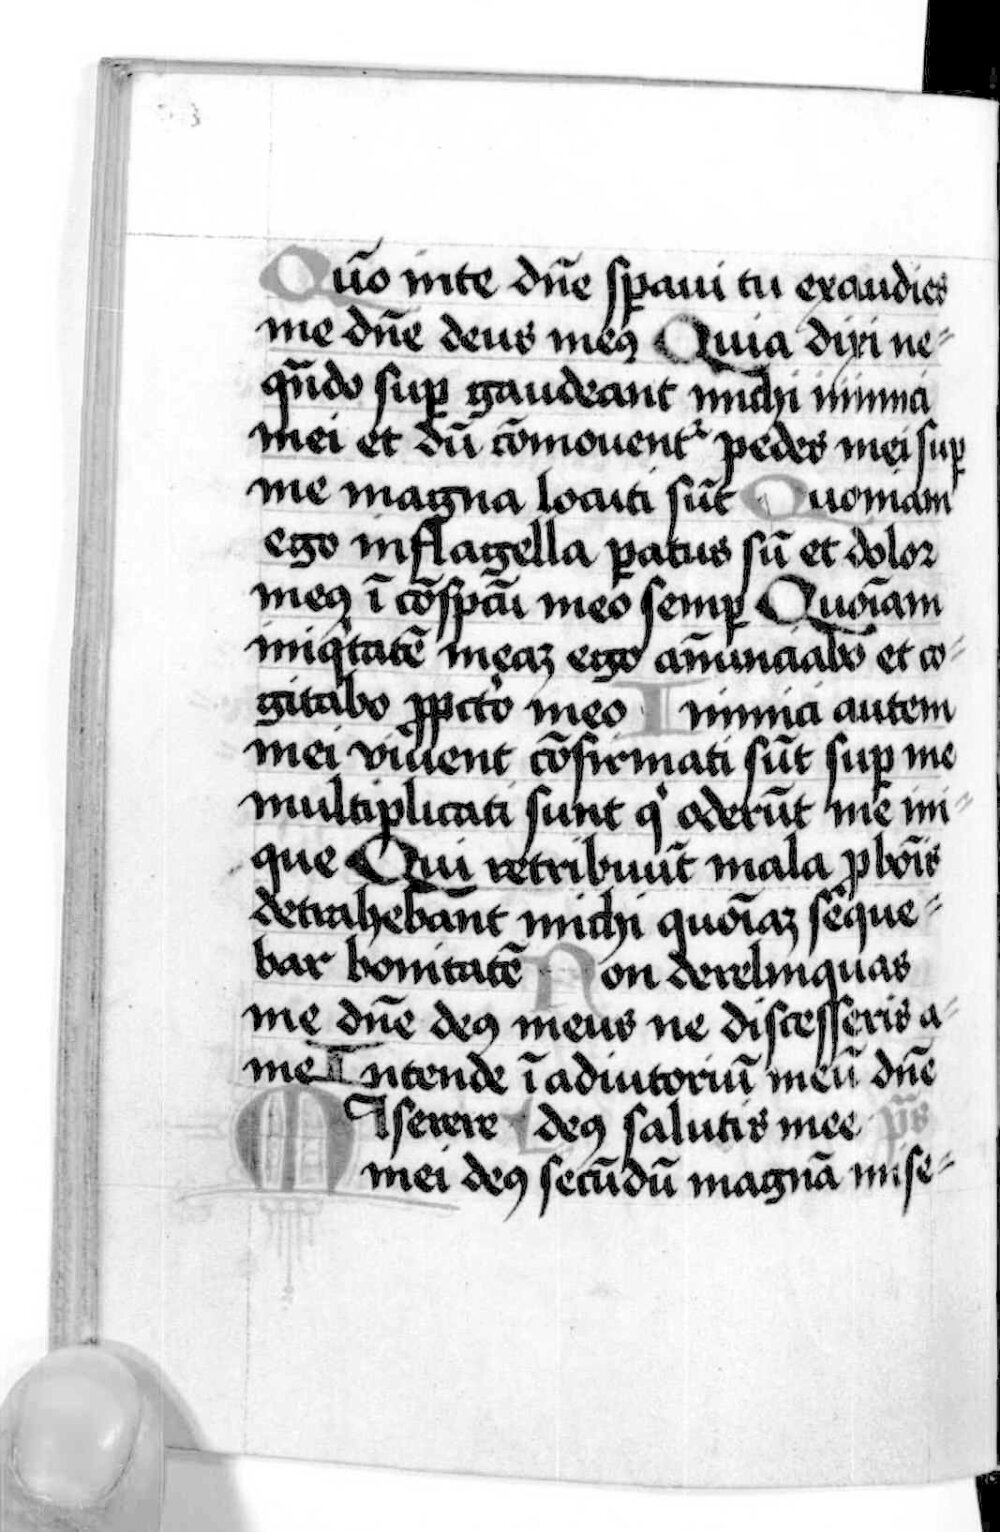 Quō inte dn̄e sꝑaui tu exaudies
me dn̄e deus meꝰ Quia dixi ne⸗
qn̄do suꝑ gaudeant michi inimici
mei et dū cōmouentᷣ pedes mei suꝑ
me magna locuti sūt Quoniam
ego inflagella ꝑatus sū et dolor
meꝰ ī cōspcū meo semꝑ Quoīam
iniqͥtatē meaꝫ ego an̄unciabo et co⸗
gitabo ꝓ pcc̄to meo Inimici autem
mei viuent cōfirmati sūt suꝑ me
multiplicati sunt qͥ oderūt me ini⸗
que Qui retribuūt mala ꝓ boīs
detrahebānt michi quoīaꝫ sēque⸗
bar bonitatē Non derelinquas
me dn̄e deꝰ meus ne discesseris a⸗
me Intende ī adiutoriū meū dn̄e
Miserere deꝰ salutis mee p̄s
mei deꝰ secūdū magnā mise⸗